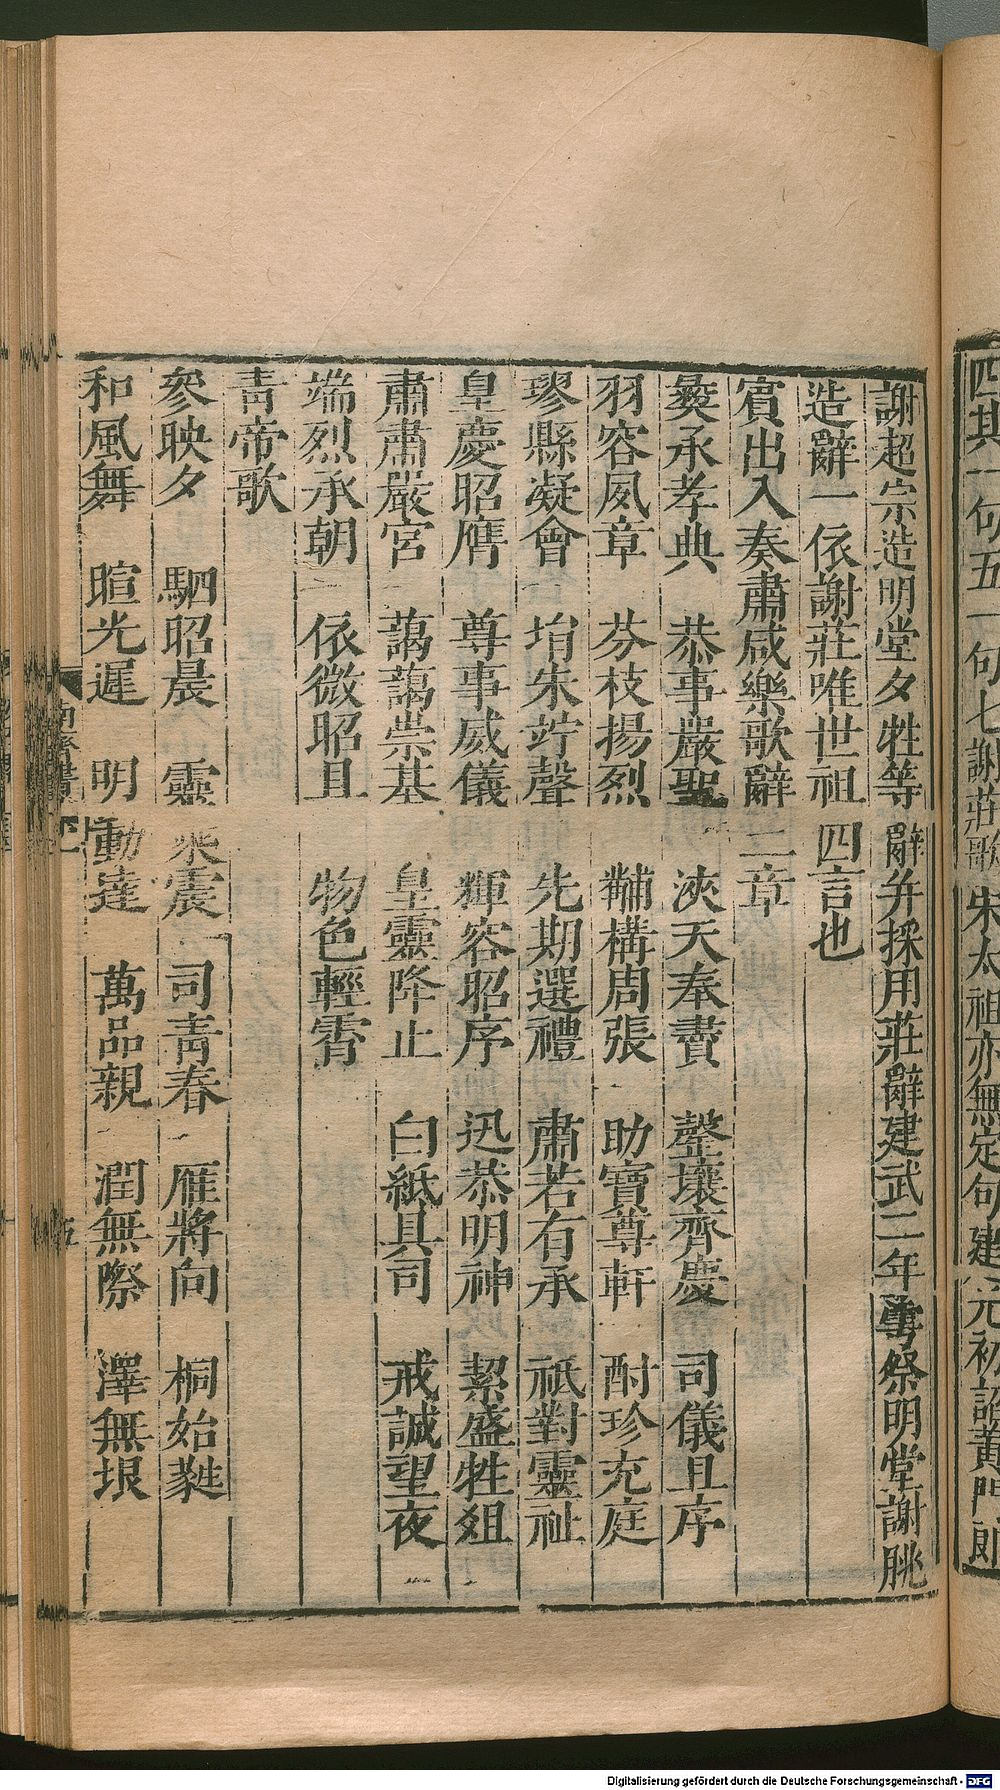 四其一句五一句七謝莊歌宋太祖亦無定句建元初詔黃門郎
謝超宗造明堂夕牲等辭并採用莊辭建武二年雩祭明堂謝朓
造辭一依謝莊唯世祖四言也
賓出入奏肅咸樂歌辭二章
彝承孝典 恭事嚴聖 浹天奉賮 罄壤齊慶 司儀且序
羽容夙章 芬枝揚烈 黼構周張 助寶尊軒 酎珍充庭
璆縣凝會 堉朱竚聲 先期選禮 肅若有承 祇對靈祉
皇慶昭膺 尊事威儀 輝容昭序 迅恭明神 絜盛牲俎
肅肅嚴宮 藹藹崇基 皇靈降止 白紙具司 戒誠望夜
端烈承朝 依微昭旦 物色輕霄
青帝歌
參映夕 駟昭晨 靈乘震 司青春 雁將向 桐始蕤
和風舞 暄光遲 明動達 萬品親 潤無際 澤無垠
南齊書
五
Digitalisierung gefördert durch die Deutsche Forschungsgemeinschaft - DFG